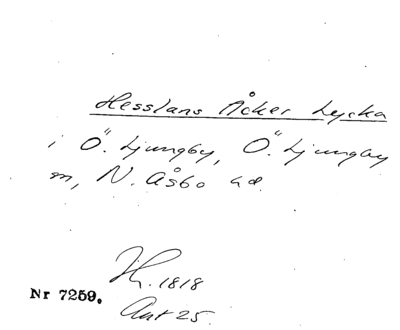 Hesslans Åcker Lycka
i Ö. Ljungby, Ö. Ljungby
m, N. Åsbo hd.
H. 1818
Nr 7259.
Akt 25.